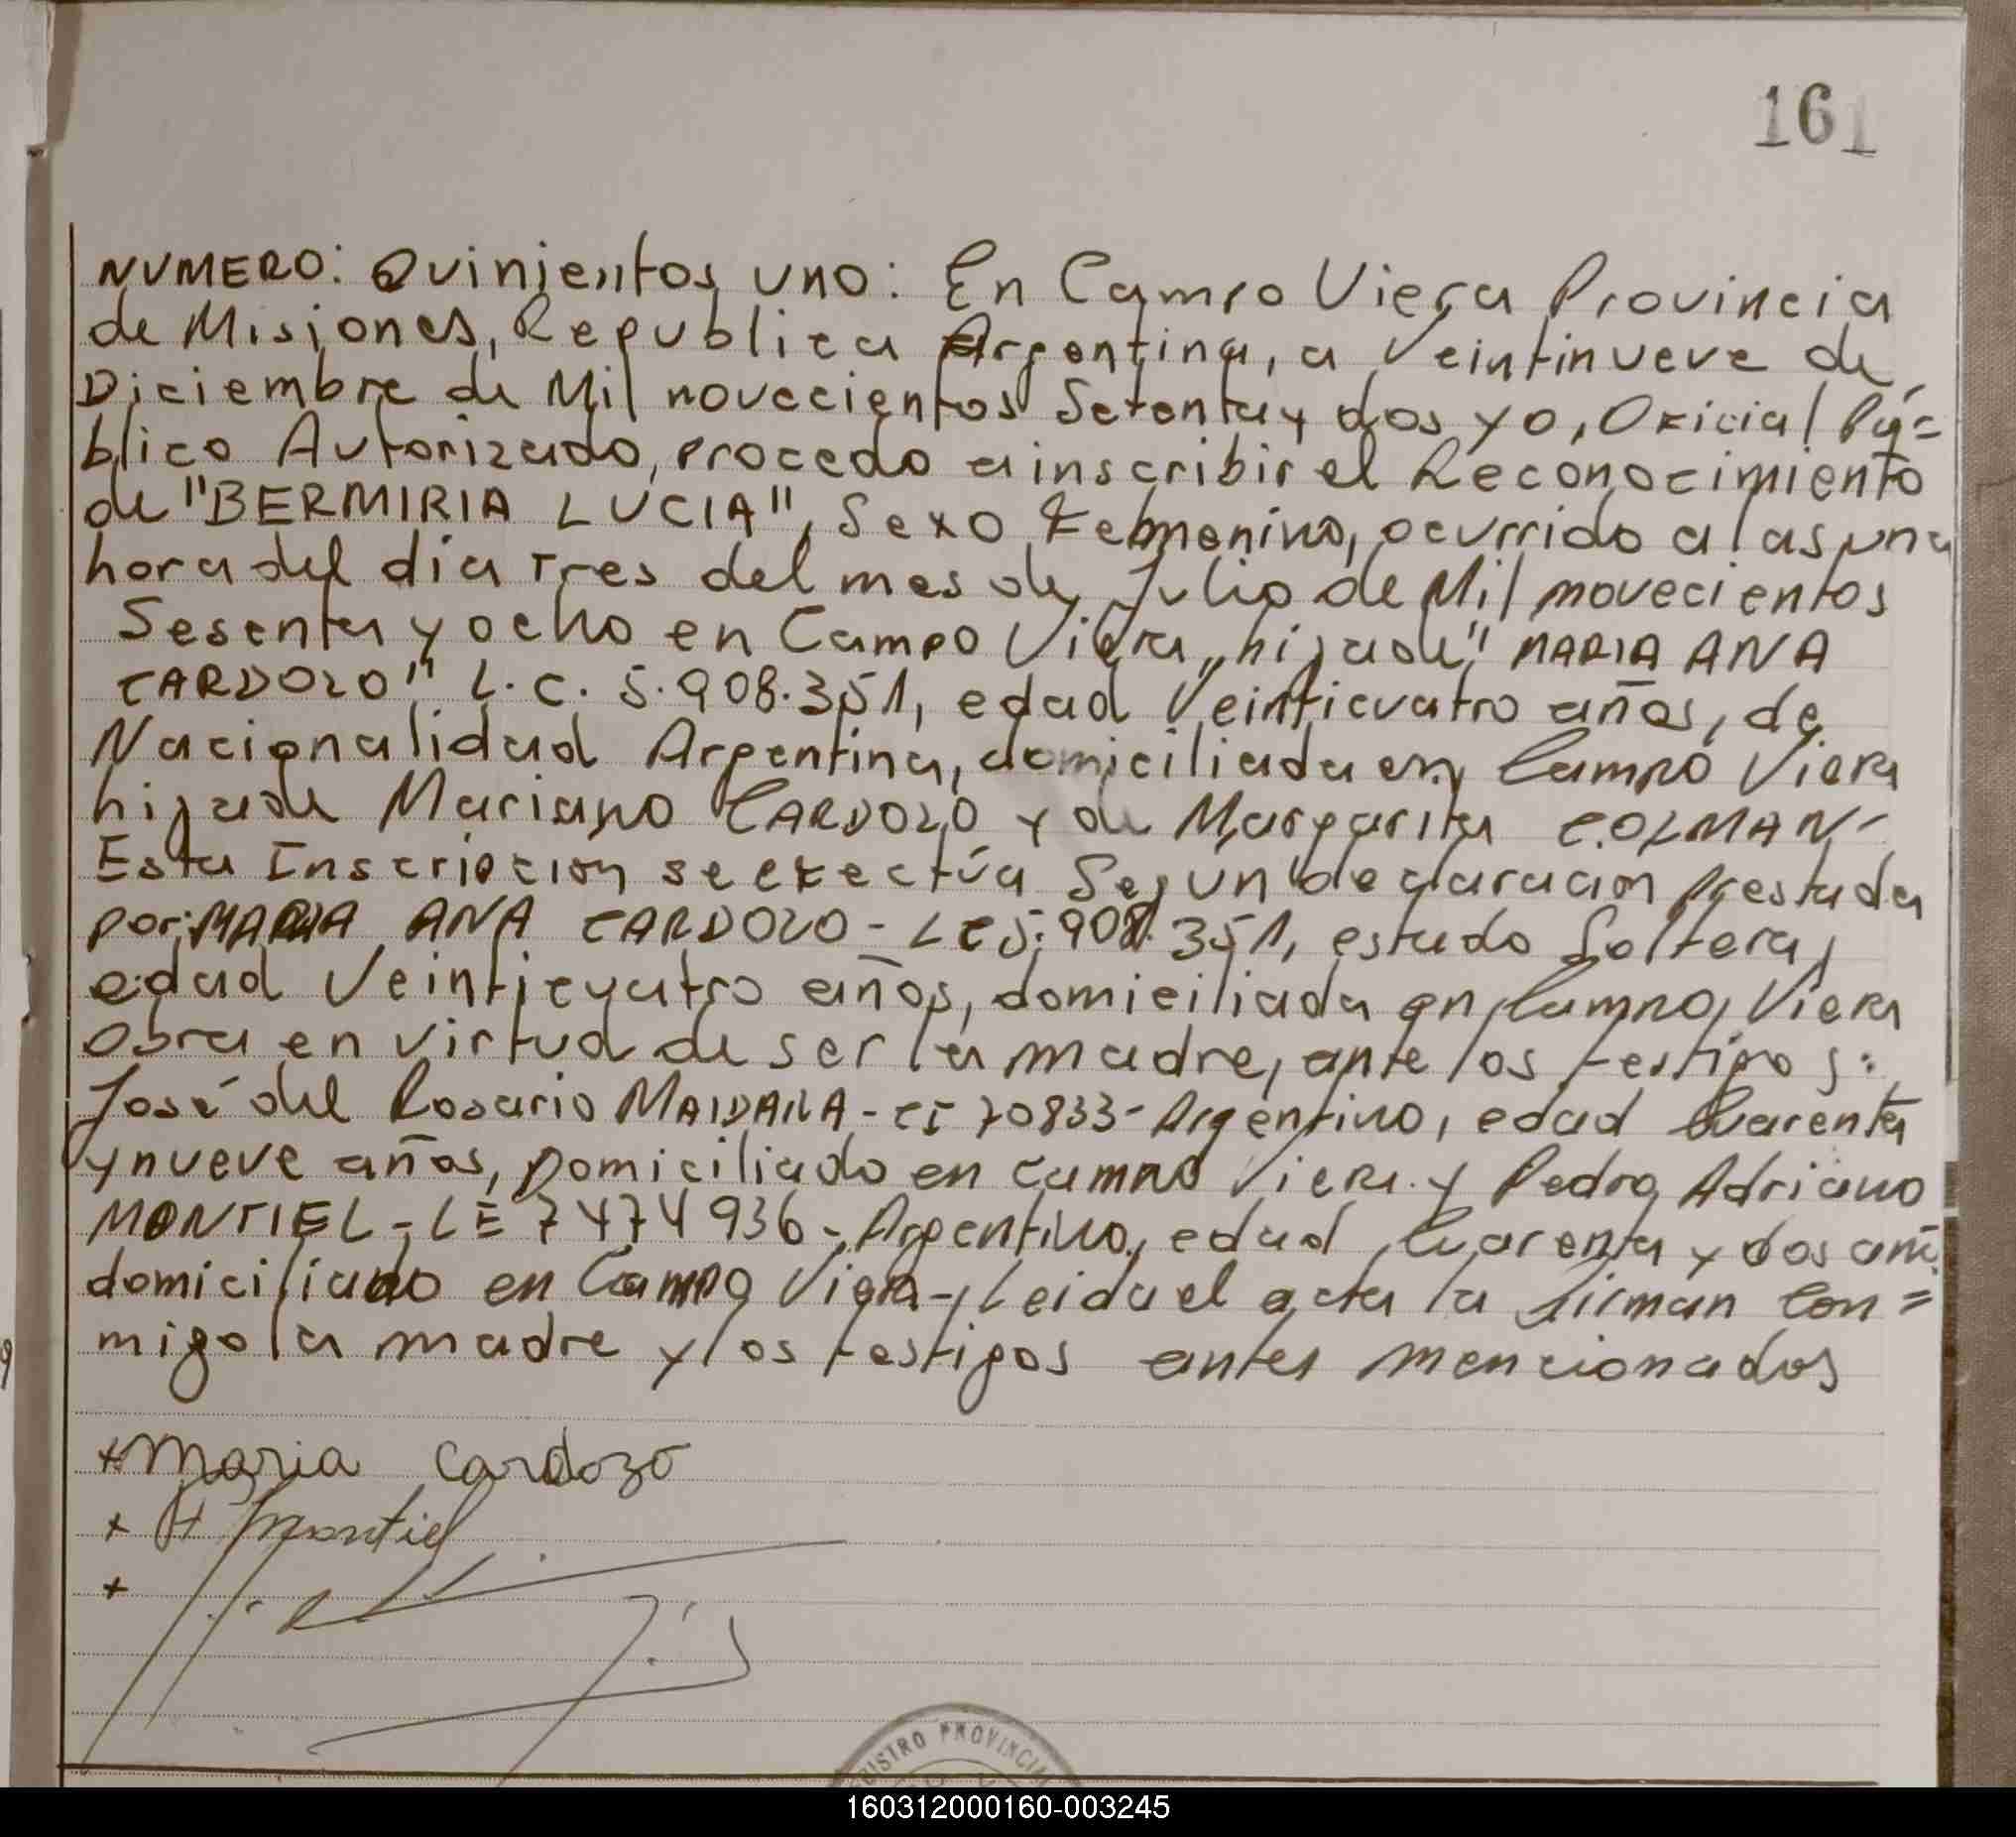 161
NUMERO: Quinientos uno: En Campo Viera Provincia
de Misiones, Republica Argentina, a Veintinueve de
Diciembre de Mil novecientos Setenta y dos yo, Oficial Pú=
blico Autorizado, procedo a inscribir el Reconocimiento
de "BERMIRIA LUCIA", Sexo Femenino, ocurrido a las una
hora del día Tres del mes de Julio de Mil novecientos
Sesenta y ocho en Campo Viera, hija de "MARIA ANA
CARDOZO" L.C. 5.908.351, edad Veinticuatro años, de
Nacionalidad Argentina, domiciliada en Campo Viera
hija de Mariano CARDOZO y de Margarita COLMAN-
Esta Inscripcion se efectúa Según declaracion Prestada
por: MARIA ANA CARDOZO - LC 5.908.351, estado Soltera,
edad Veinticuatro años, domiciliada en Campo Viera
Obra en virtud de ser la madre, ante los testigos:
José del Rosario MAIDANA - CI 70833- Argentino, edad Cuarenta
y nueve años, Domiciliado en Campo Viera y Pedro Adriano
MONTIEL - LE 7474936 - Argentino, edad Cuarenta y dos añ
domiciliado en Campo Viera-, Leida el acta la firman Con=
migo la madre y los testigos antes mencionados
+ Maria Cardozo
+ Montiel
+
REGISTRO PROVINCIA
160312000160-003245